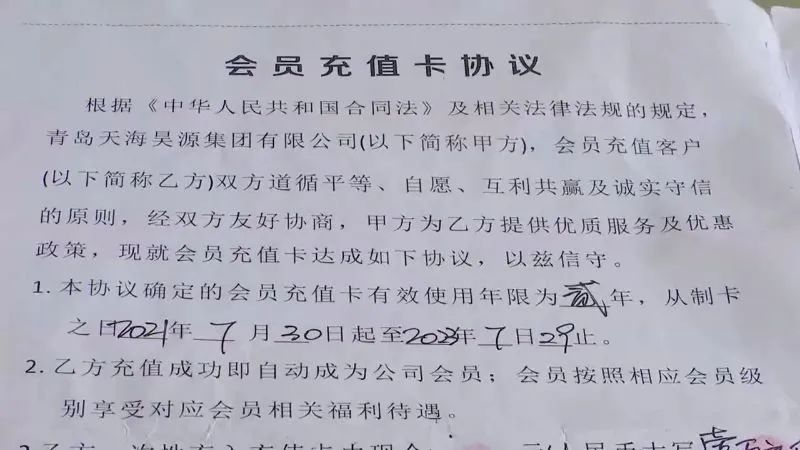 会员充值卡协议
根据《中华人民共和国合同法》及相关法律法规的规定，
青岛天海昊源集团有限公司(以下简称甲方)，会员充值客户
(以下简称乙方)双方道循平等、自愿、互利共赢及诚实守信
的原则，经双方友好协商，甲方为乙方提供优质服务及优惠
政策，现就会员充值卡达成如下协议，以兹信守。
1. 本协议确定的会员充值卡有效使用年限为贰年，从制卡
之日2021年7月30日起至2023年7日29止。
2. 乙方充值成功即自动成为公司会员；会员按照相应会员级
别享受对应会员相关福利待遇。
乙方一次性存入充值卡中现金 元(人民币大写壹万